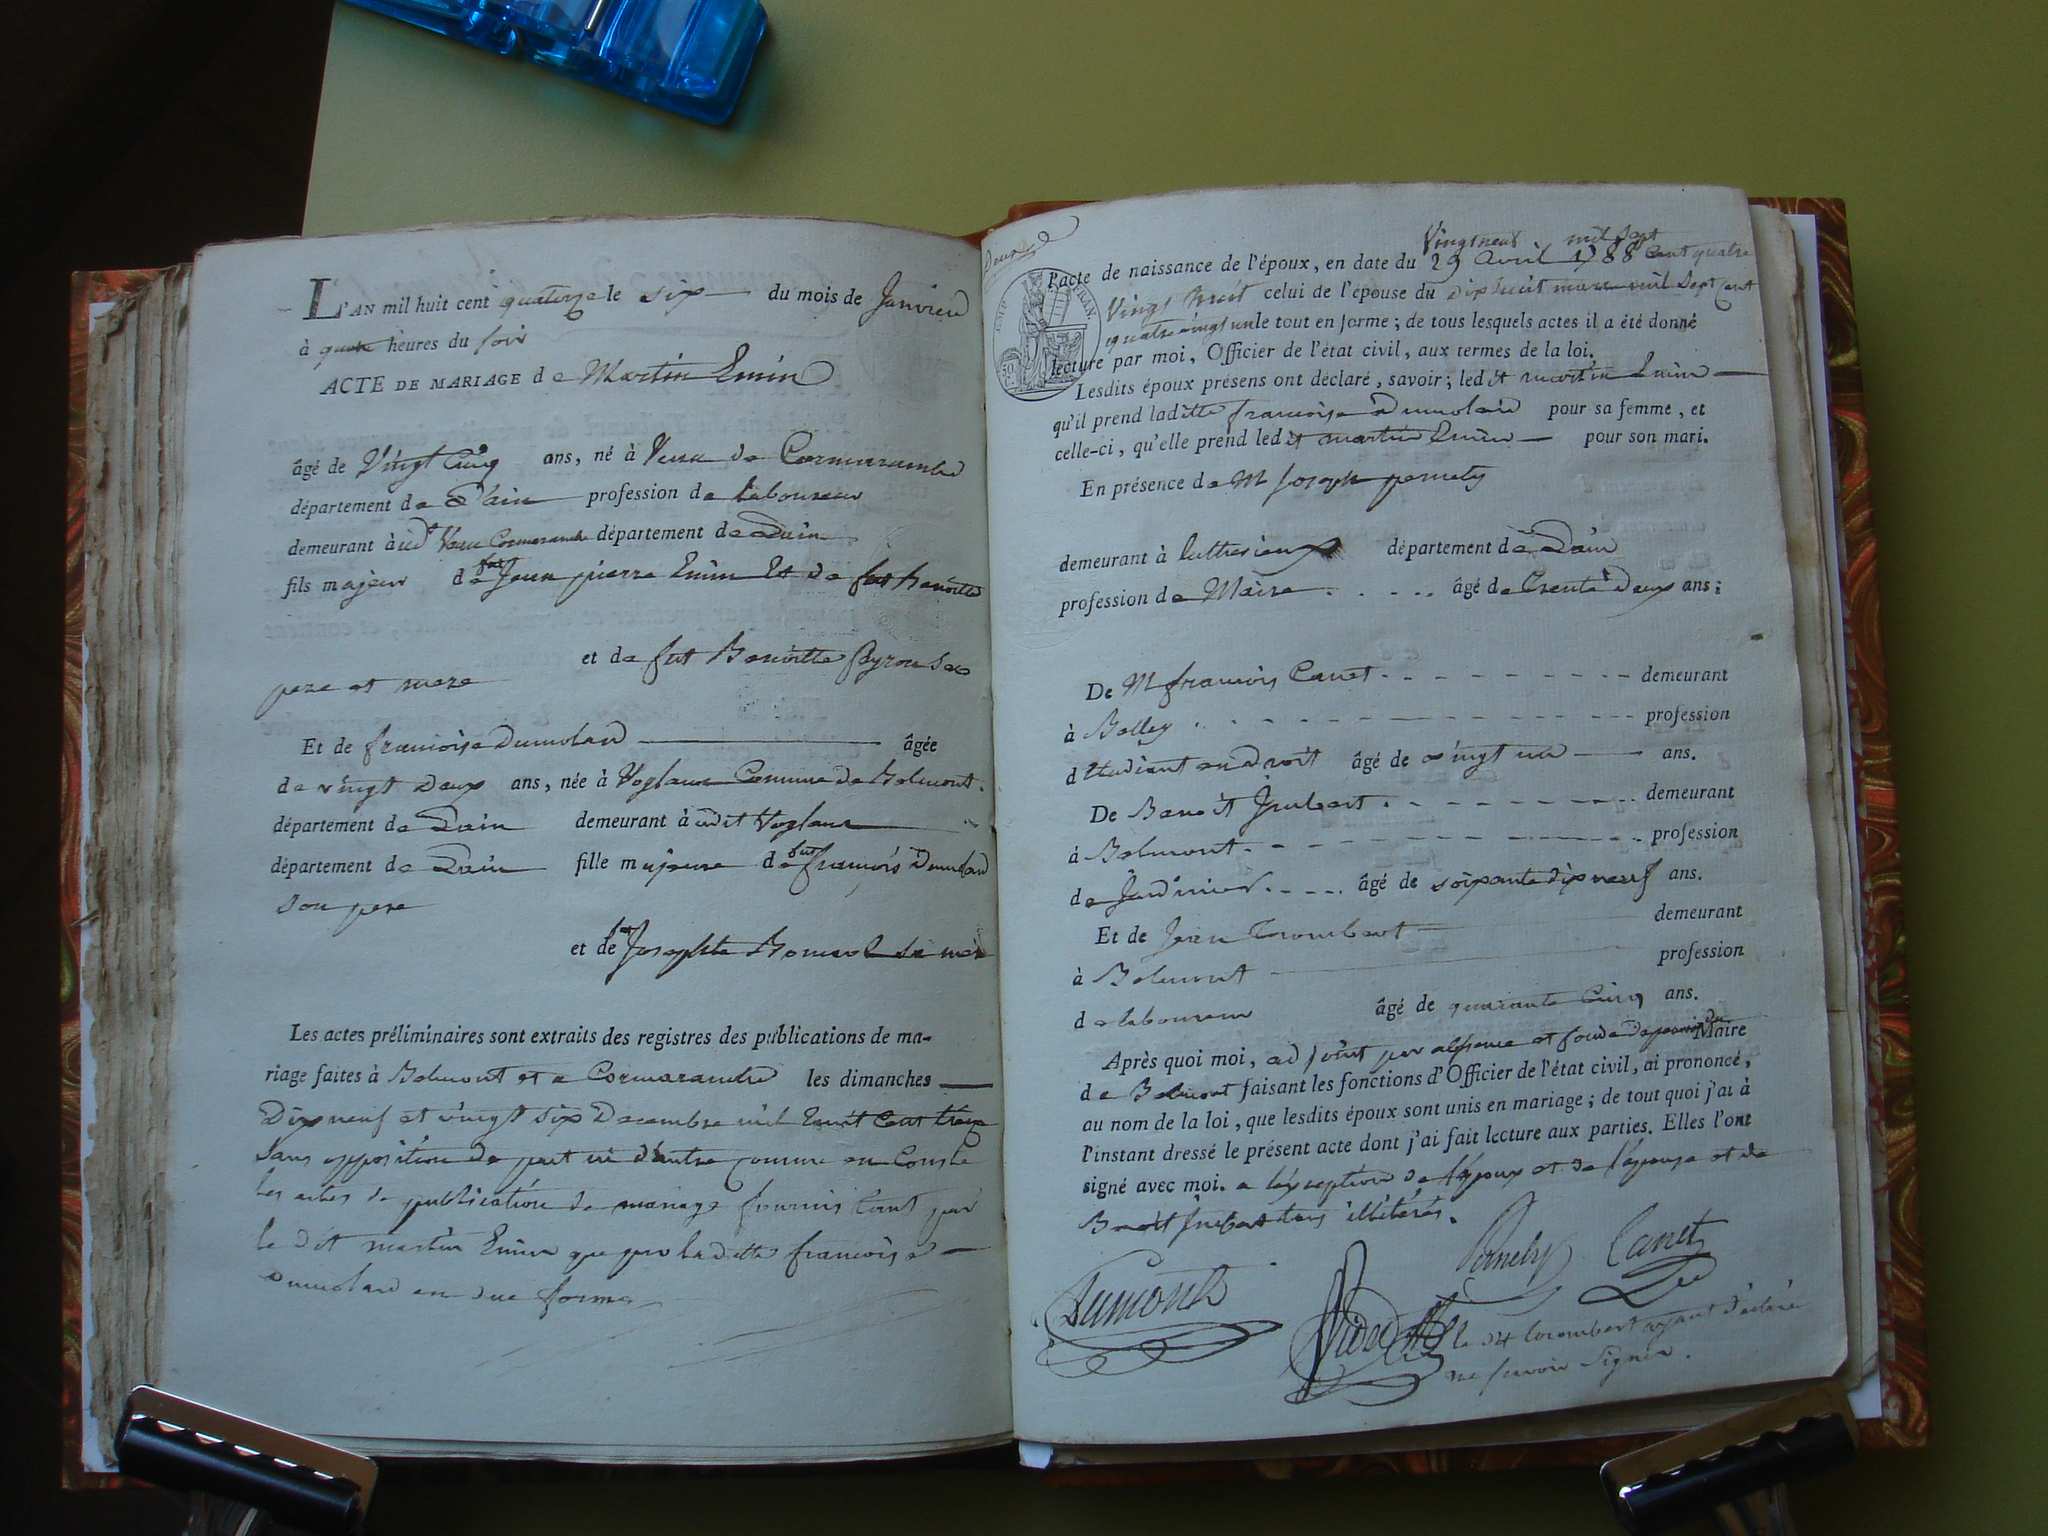 L'AN mil huit cent quatorze le six du mois de Janvier
à quatre heures du soir
ACTE DE MARIAGE de Martin Emin
âgé de Vingt Cinq ans, né à Vera de Cormaranche
département de L'ain profession de laboureur
demeurant à udt Vera Cormaranche département de Lain
fils majeur de fut Jean pierre Emin Et de fut benoitte
et de fut Benoitte Peyron ses
pere et mere
Et de francoise Dumolard âgée
de vingt deux ans, née à Voglans Comune de Belmont
département de Lain demeurant à udit Voglans
département de Lain fille majeure de fut francois Dumolard
son pere
et de fut Josephte Bonnerol sa mere
Les actes préliminaires sont extraits des registres des publications de ma-
riage faites à Belmont et a Cormaranche les dimanches
Dix neuf et vingt six Decembre mil huit Cent treize
Sans opposition de part ni d'autre comme en Conste
les actes de publication de mariage fournis tant par
le dit martin Emin que par laditte francoise
Dumolard en due forme
Deux
50
l'acte de naissance de l'époux, en date du 29 Avril 1788 Vingt neuf mil sept cent quatre
Vingt huit celui de l'épouse du dix huit mars mil sept cent
quatre vingt un le tout en forme ; de tous lesquels actes il a été donné
lecture par moi, Officier de l'état civil, aux termes de la loi.
Lesdits époux présens ont déclaré, savoir ; ledit martin Emin
qu'il prend laditte francoise Dumolard pour sa femme, et
celle-ci, qu'elle prend ledit martin Emin pour son mari.
En présence de M Joseph pernety
demeurant à luthezieux département de Lain
profession de Maire âgé de trente deux ans ;
De M francois Canet demeurant
à Belley profession
d'Etudiant en droit âgé de vingt un ans.
De Benoit Jeubert demeurant
à Belmont profession
de Jardinier âgé de soixante dix neuf ans.
Et de Jean Trombert demeurant
à Belmont profession
de laboureur âgé de quarante Cinq ans.
Après quoi moi, adjoint par absence et fondé de pouvoir du Maire
de Belmont faisant les fonctions d'Officier de l'état civil, ai prononcé,
au nom de la loi, que lesdits époux sont unis en mariage ; de tout quoi j'ai à
l'instant dressé le présent acte dont j'ai fait lecture aux parties. Elles l'ont
signé avec moi. a l'exception de l'époux et de l'épouse et de
Benoit Jeubert tous illitérés.
Pernety Canet
Dumonts
le dit trombert ayant déclaré
ne savoir signer.